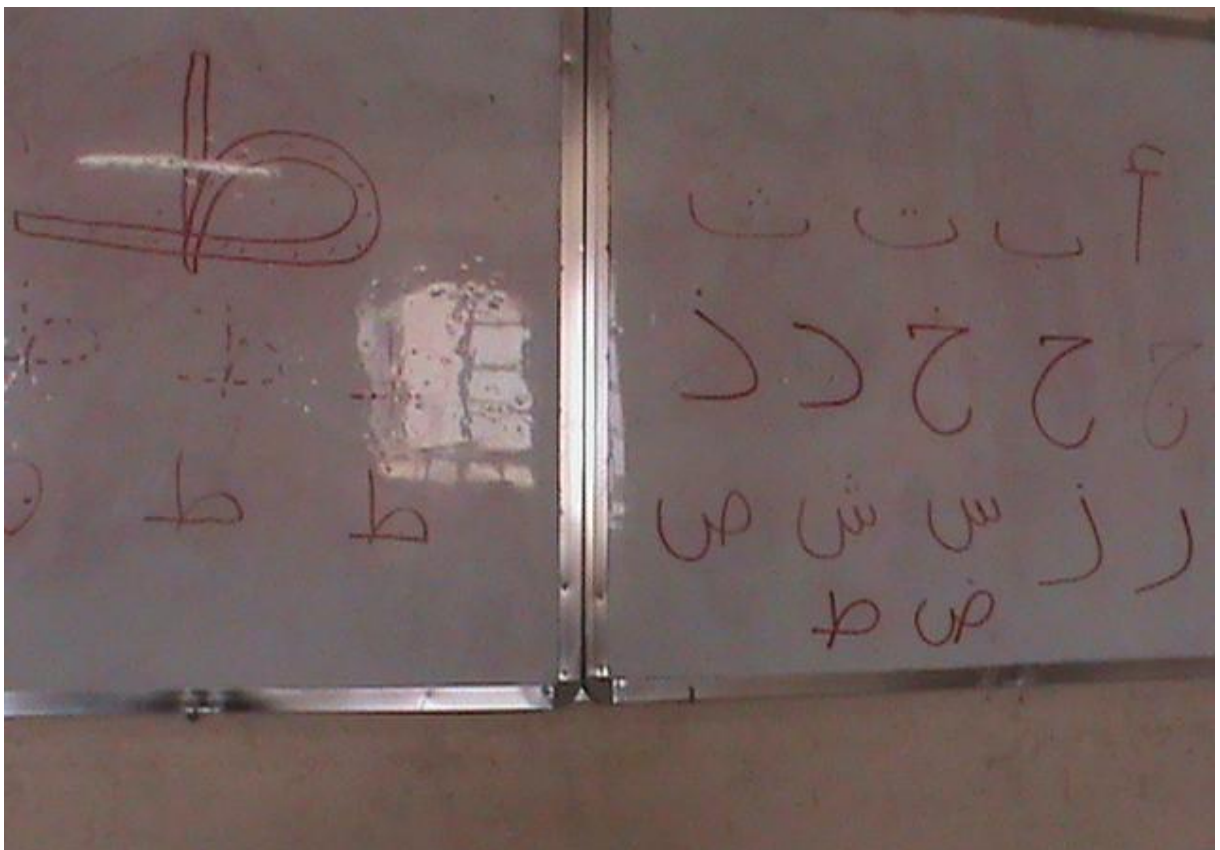 أ ب ت ث
ج ح خ د ذ
ر ز س ش ص
ض ط
ط
ط ط